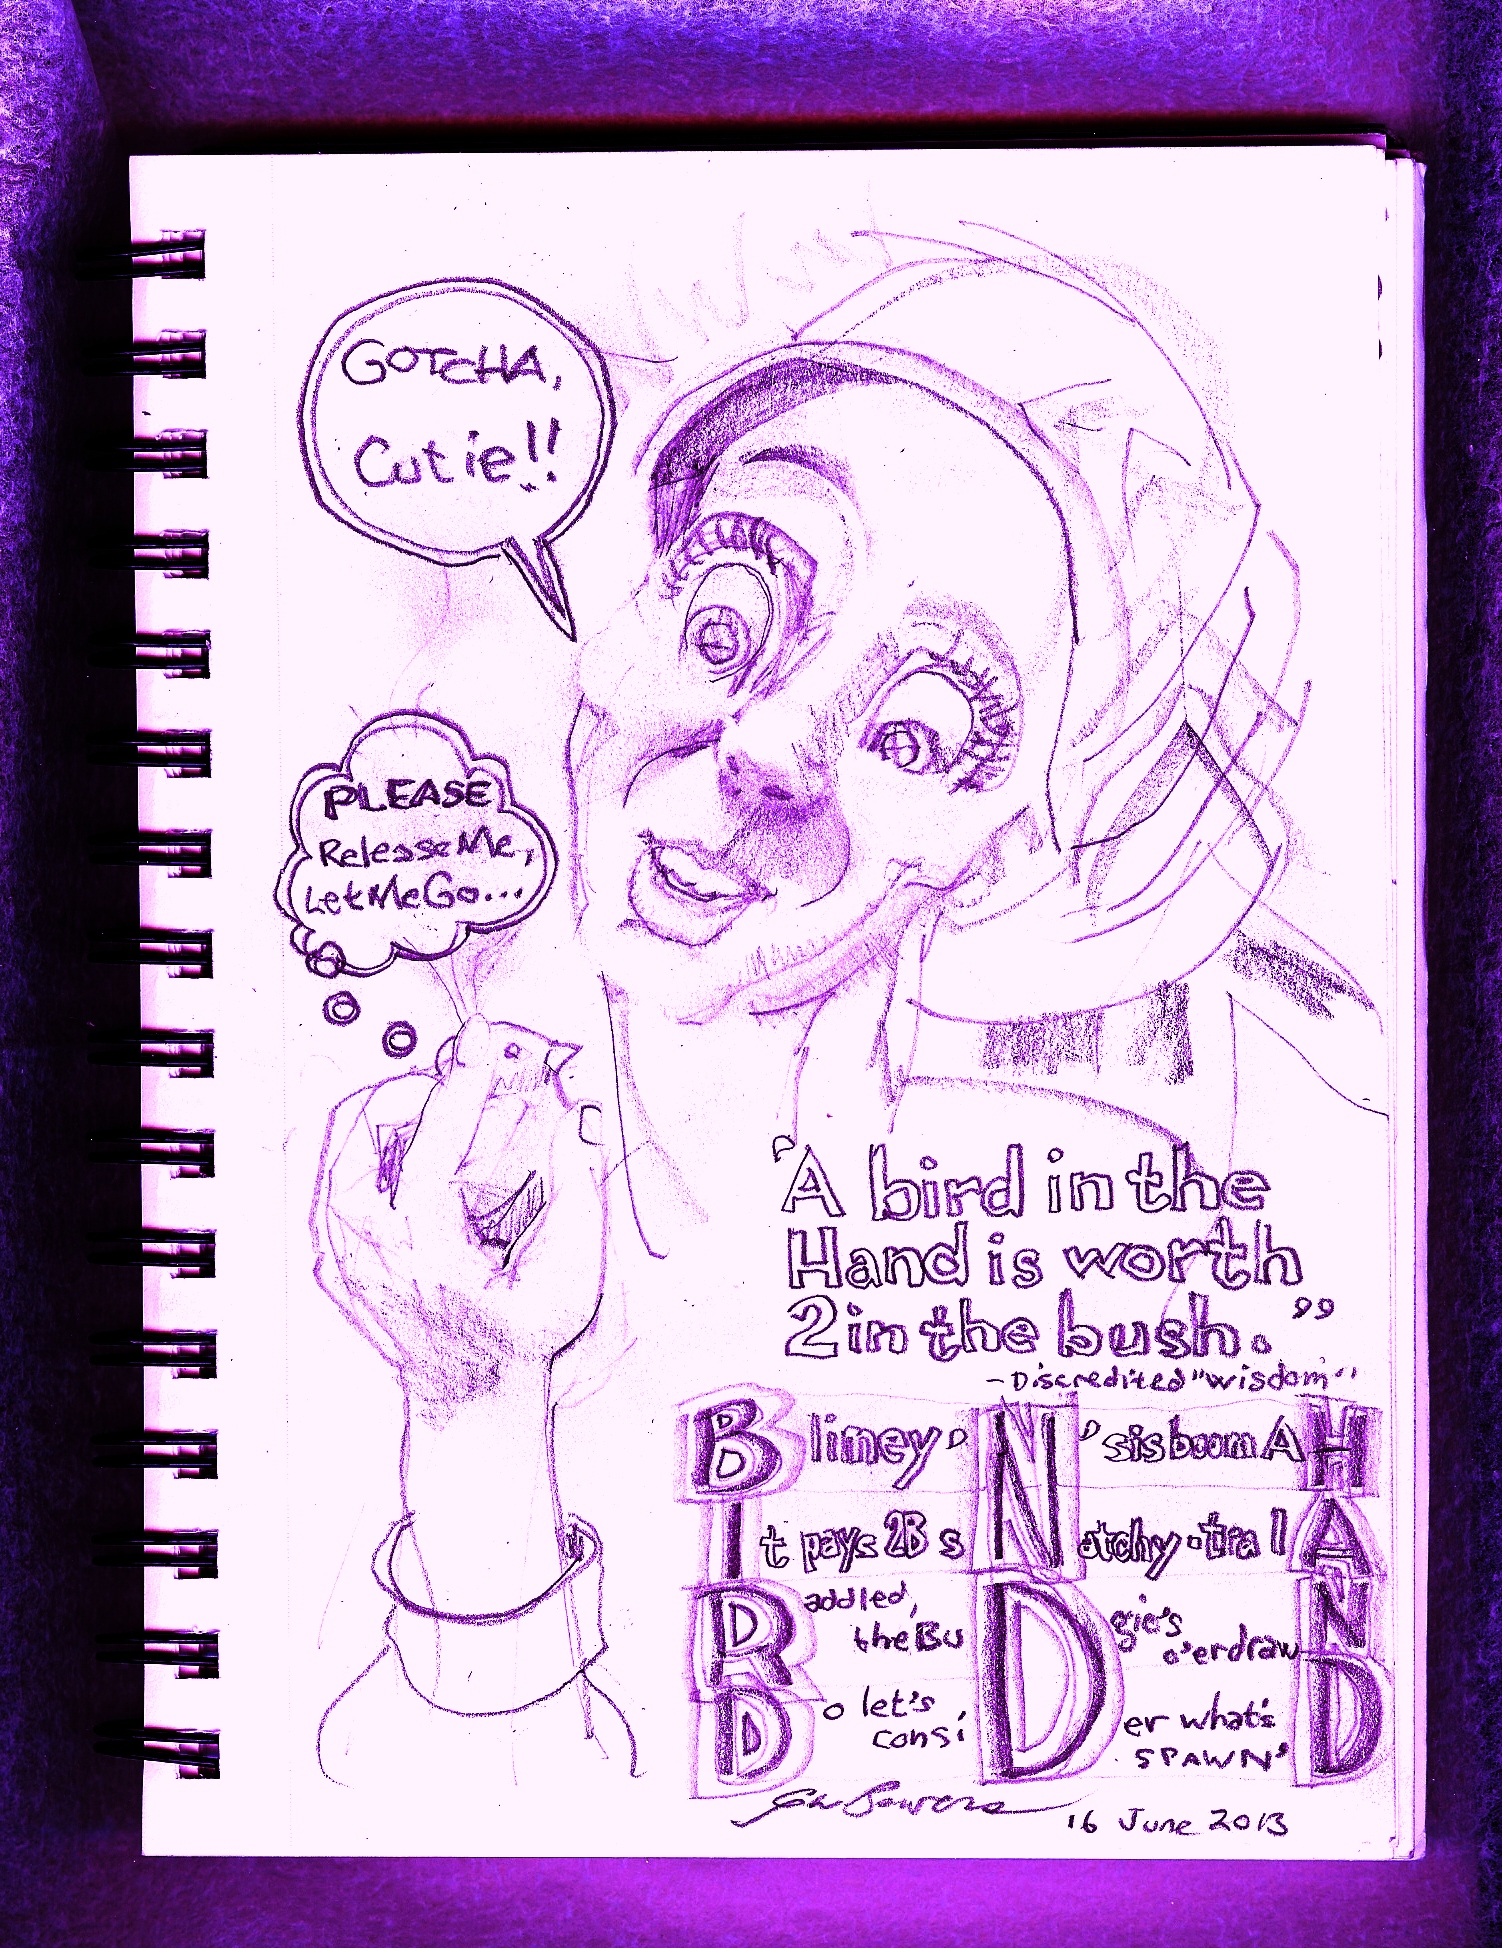 GOTCHA,
Cutie!!
PLEASE
Release Me,
Let Me Go...
"A bird in the
Hand is worth
2 in the bush."
- Discredited "wisdom"
Blimey' N 'sisboomAH
It pays 2B sNatchy-tralA
Raddled, the BuDgie's o'erdrawN
Do let's consiDer what's SPAWN'D
16 June 2013